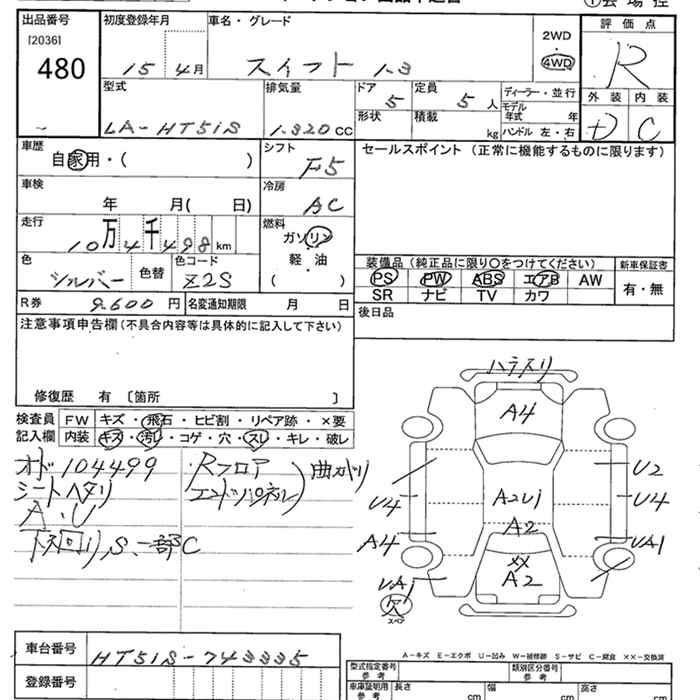 出品番号 初度登録年月 車名・グレード ① 会場控
[2036] 評価点
480 15 4月 スイフト 1-3 2WD 4WD R
型式 排気量 ドア 5 定員 5人 ディーラー・並行 外装 内装
LA-HT51S 1.320CC 形状 積載 kg モデル年式 年 D C
ハンドル 左・右
車歴 自家用・( ) シフト F5 セールスポイント (正常に機能するものに限ります)
車検 年 月( 日) 冷房 AC
走行 10万4千498km 燃料 ガソリン
軽・油
( )
色 シルバー 色替 色コード Z2S
装備品 (純正品に限り〇をつけてください) 新車保証書
PS PW ABS エアB AW 有・無
SR ナビ TV カワ
R券 9.600円 名変通知期限 月 日 後日品
注意事項申告欄 (不具合内容等は具体的に記入して下さい)
修復歴 有 〔箇所 〕
検査員 FW キズ・飛石・ヒビ割・リペア跡・×要
記入欄 内装 キズ・汚レ・コゲ・穴・スレ・キレ・破レ
オド104499 Rフロア
シートヘタリ エンドパネル) 曲がり
A・U
下回りS、一部C
ハラスリ
A4
U2
U4 A2U1 U4
A2
A4 UA1
XX
UA1 A2
欠
スペア
A-キズ E-エクボ U-凹み W-補修跡 S-サビ C-腐食 ××-交換済
車台番号 HT51S-743335
登録番号
型式指定番号 参考 類別区分番号 参考
車庫証明用 参考 長さ cm 幅 cm 高さ cm